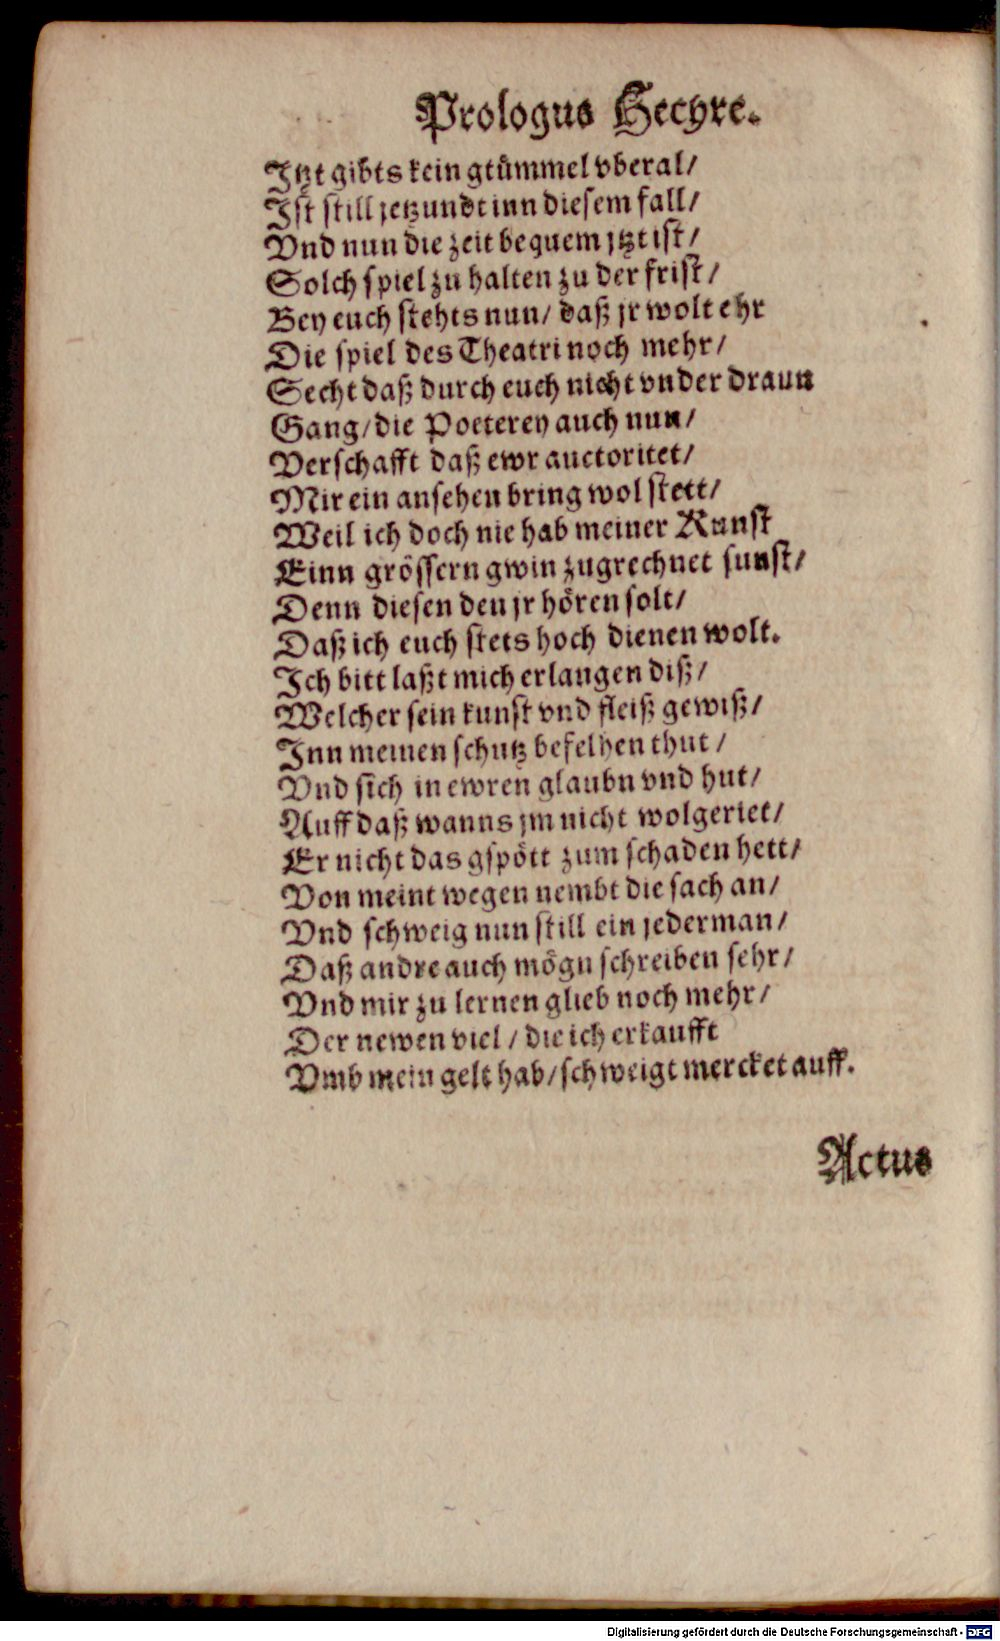 Prologus Hecyre.
Jtzt gibts kein gtümmel vberal/
Jst still jetzundt inn diesem fall/
Vnd nun die zeit bequem jtzt ist/
Solch spiel zu halten zu der frist/
Bey euch stehts nun/ daß jr wolt ehr
Die spiel des Theatri noch mehr/
Secht daß durch euch nicht vnder draun
Gang/ die Poeterey auch nun/
Verschafft daß ewr auctoritet/
Mir ein ansehen bring wol stett/
Weil ich doch nie hab meiner Kunst
Einn grössern gwin zugrechnet sunst/
Denn diesen den jr hören solt/
Daß ich euch stets hoch dienen wolt.
Jch bitt laßt mich erlangen diß/
Welcher sein kunst vnd fleiß gewiß/
Jnn meinen schutz befelhen thut/
Vnd sich in ewren glaubn vnd hut/
Auff daß wanns jm nicht wolgeriet/
Er nicht das gspött zum schaden hett/
Von meint wegen nembt die sach an/
Vnd schweig nun still ein jederman/
Daß andre auch mögn schreiben sehr/
Vnd mir zu lernen glieb noch mehr/
Der newen viel/ die ich erkaufft
Vmb mein gelt hab/ schweigt mercket auff.
Actus
Digitalisierung gefördert durch die Deutsche Forschungsgemeinschaft - DFG